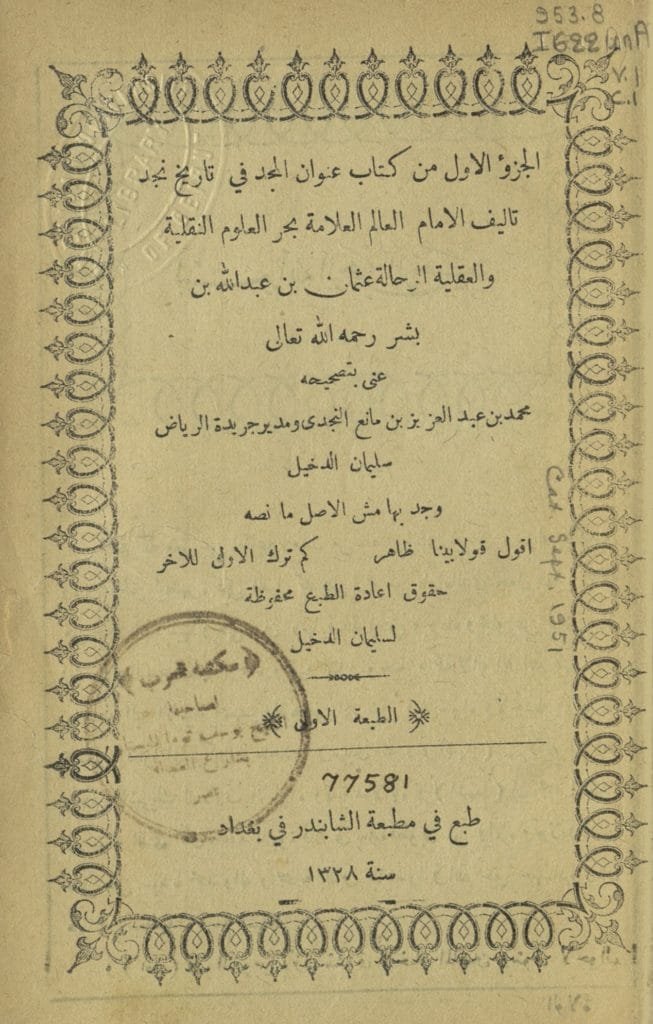 953.8
I622UnA
V.1
C.1
الجزؤ الاول من كتاب عنوان المجد في تاريخ نجد
تاليف الامام العالم العلامة بحر العلوم النقلية
والعقلية الرحالة عثمان بن عبدالله بن
بشر رحمه الله تعالى
عنى بتصحيحه
محمد بن عبد العزيز بن مانع النجدى ومدير جريدة الرياض
سليمان الدخيل
وجد بهامش الاصل ما نصه
اقول قولا بينا ظاهر كم ترك الاول للاخر
حقوق اعادة الطبع محفوظة
لسليمان الدخيل
الطبعة الاولى
77581
طبع في مطبعة الشابندر في بغداد
سنة ١٣٢٨
Cat. Sept. 1951
مكتبة العرب
لصاحبها
يوسف توما
مصر
LIBRARY